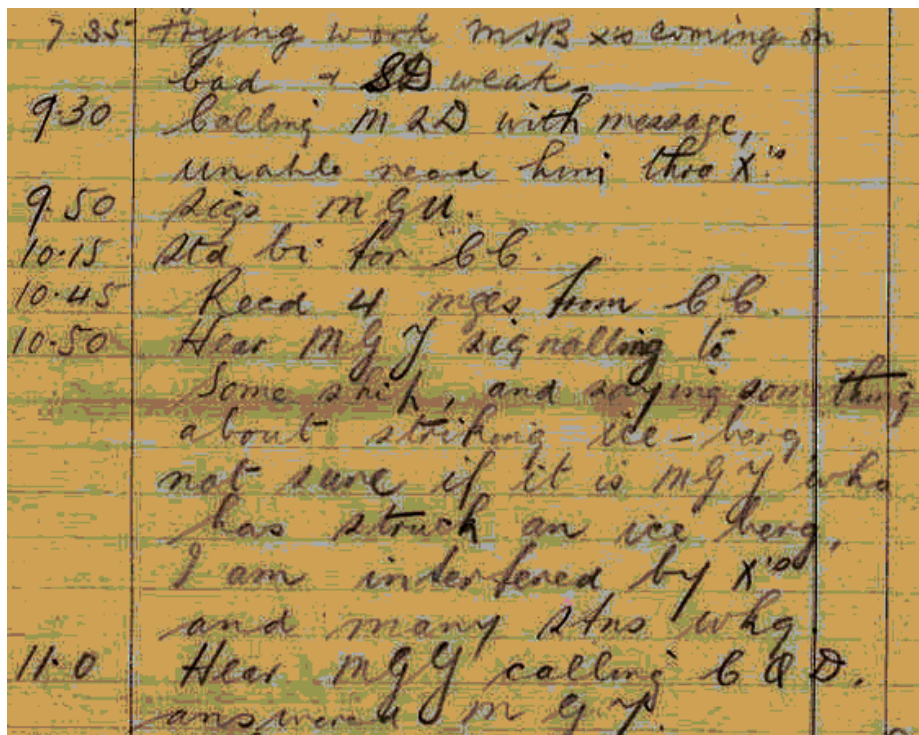 7 35 Trying work MSB x's coming on
bad & SD weak.
9.30 Calling MSD with message,
unable read him thro X's
9.50 Sigs MGU.
10.15 Std bi for CC.
10.45 Recd 4 mges from CC.
10.50 Hear MGY signalling to
Some ship, and saying something
about striking ice-berg
not sure if it is MGY who
has struck an ice berg,
I am interfered by X's
and many stns wkg.
11.0 Hear MGY calling CQD.
answered MGY.